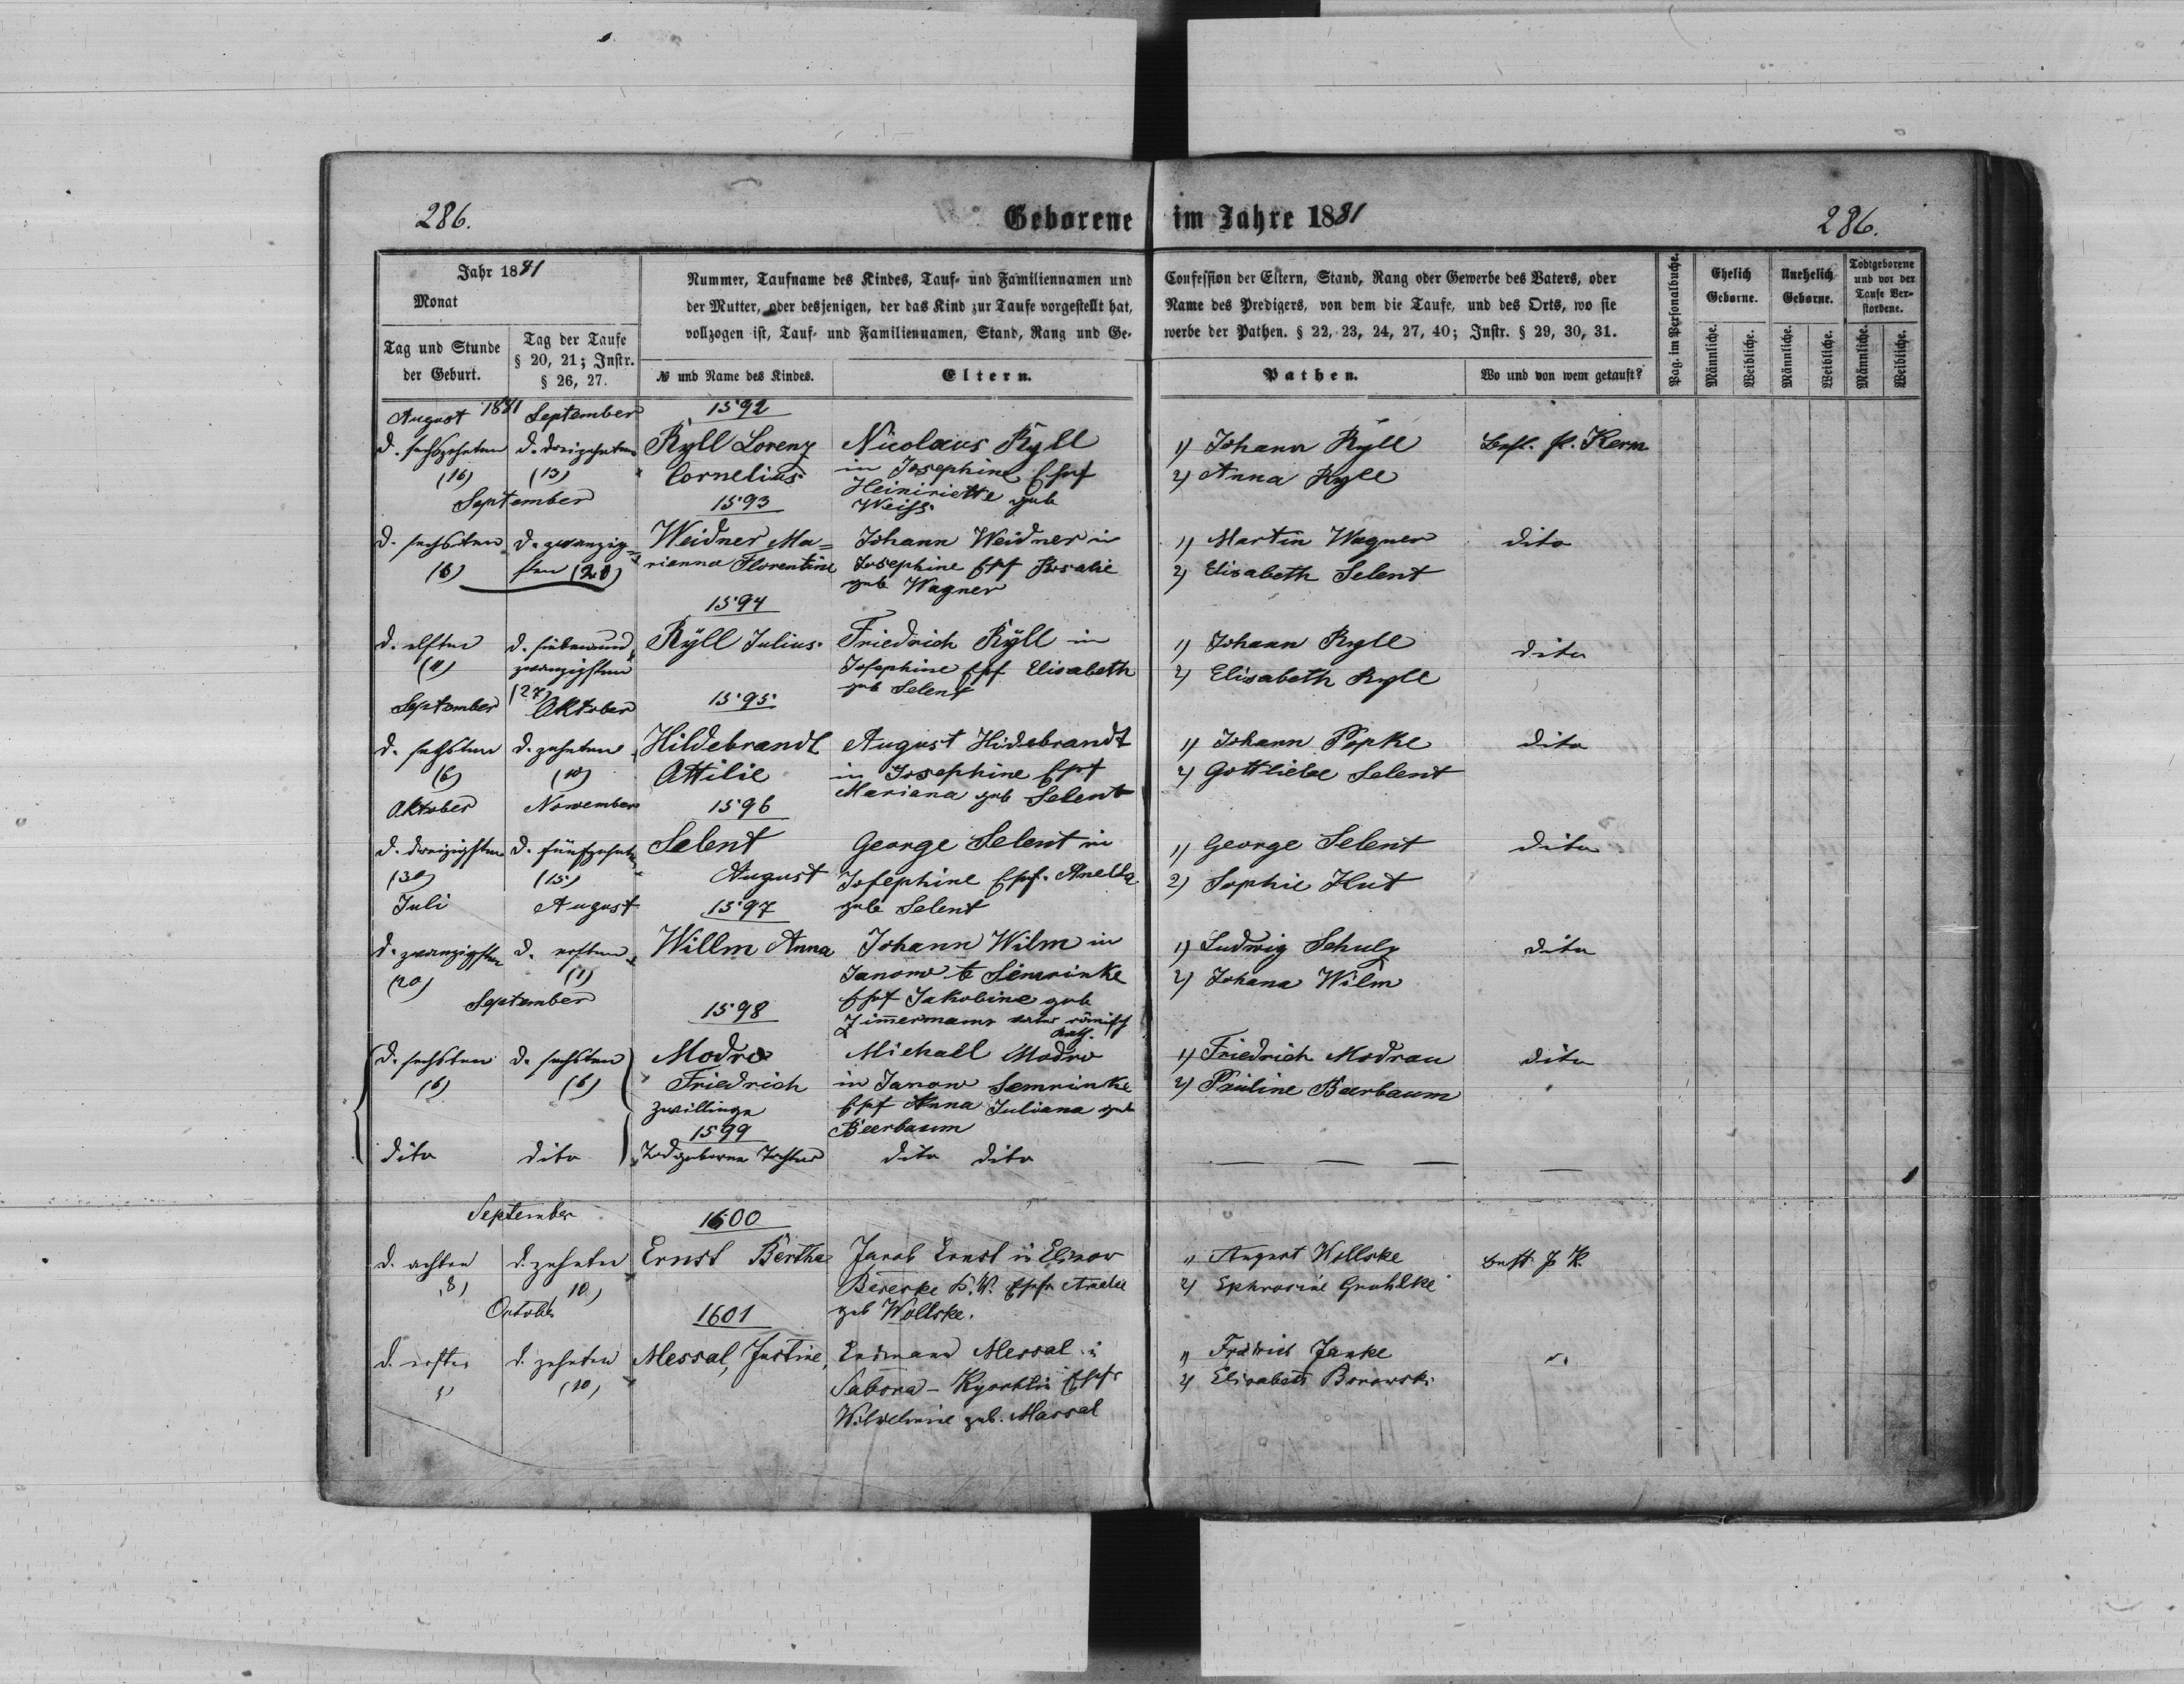 286.
Geborene im Jahre 1881
286.
Jahr 1881
Monat
Tag und Stunde
der Geburt.
Tag der Taufe
§ 20, 21; Instr.
§ 26, 27.
Nummer, Taufname des Kindes, Tauf- und Familiennamen und
der Mutter, oder desjenigen, der das Kind zur Taufe vorgestellt hat,
vollzogen ist, Tauf- und Familiennamen, Stand, Rang und Ge-
№ und Name des Kindes.
Eltern.
Confession der Eltern, Stand, Rang oder Gewerbe des Vaters, oder
Name des Predigers, von dem die Taufe, und des Orts, wo sie
werbe der Pathen. § 22, 23, 24, 27, 40; Instr. § 29, 30, 31.
Pathen.
Wo und von wem getauft?
Pag. im Personalbuche.
Ehelich
Geborne.
Männliche.
Weibliche.
Unehelich
Geborne.
Männliche.
Weibliche.
Todtgeborene
und vor der
Taufe Ver-
storbene.
Männliche.
Weibliche.
August 1881 September
1592
d. sechszehnten
(16)
d. dreizehnten
(13)
Ryll Lorenz
Cornelius
Nicolaus Ryll
in Josephine Ehf
Heinriette geb
Weiss.
1) Johann Ryll
2) Anna Ryll
Kerm
September
1593
d. sechsten
(6)
d. zwanzig=
sten (20)
Weidner Ma=
rianna Florentine
Johann Weidner in
Josephine Ehf Rosalie
geb Wagner
1) Martin Wagner
2) Elisabeth Selent
dito
1594
d. elften
(11)
d. siebenund
zwanzigsten
(27)
Ryll Julius.
Friedrich Ryll in
Josephine Ehf Elisabeth
geb Selent
1) Johann Ryll
2) Elisabeth Ryll
dito
September Oktober
1595
d. sechsten
(6)
d. zehnten
(10)
Hildebrandt
Attilie
August Hidebrandt
in Josephine Ehf
Mariana geb Selent
1) Johann Popke
2) Gottliebe Selent
dito
Oktober November
1596
d. dreizigsten
(30)
d. fünfzehnten
(15)
Selent
August
George Selent in
Josephine Ehf. Anelda
geb Selent
1) George Selent
2) Sophie Hut
dito
Juli August
1597
d. zwanzigsten
(20)
d. ersten
(1)
Willm Anna
Johann Wilm in
Janow b Simrinke
Ehf Jakobine geb
Zimmermann Vater römisch
Kath.
1) Ludwig Schulz
2) Johana Wilm
dito
September
1598
d. sechsten
(6)
d. sechsten
(6)
Modro
Friedrich
Zwillinge
Michall Modro
in Janow Semrinke
Ehf Anna Juliana geb
Beerbaum
1) Friedrich Modrau
2) Pauline Beerbaum
dito
1599
dito
dito
Todgeborne Tochter
dito dito
September
1600
d. achten
8)
d. zehnten
10)
Ernst Bertha
Jacob Ernst in Elizow
geb Wollske.
1) August Wollske
2) Ephrosine Gruhlke
October
1601
d. ersten
1)
d. zehnten
(10)
Messal, Justine,
Erdmann Messal i
Wilhelmine geb. Massal
1) Fredrich Janke
2) Elisabeth Borowski